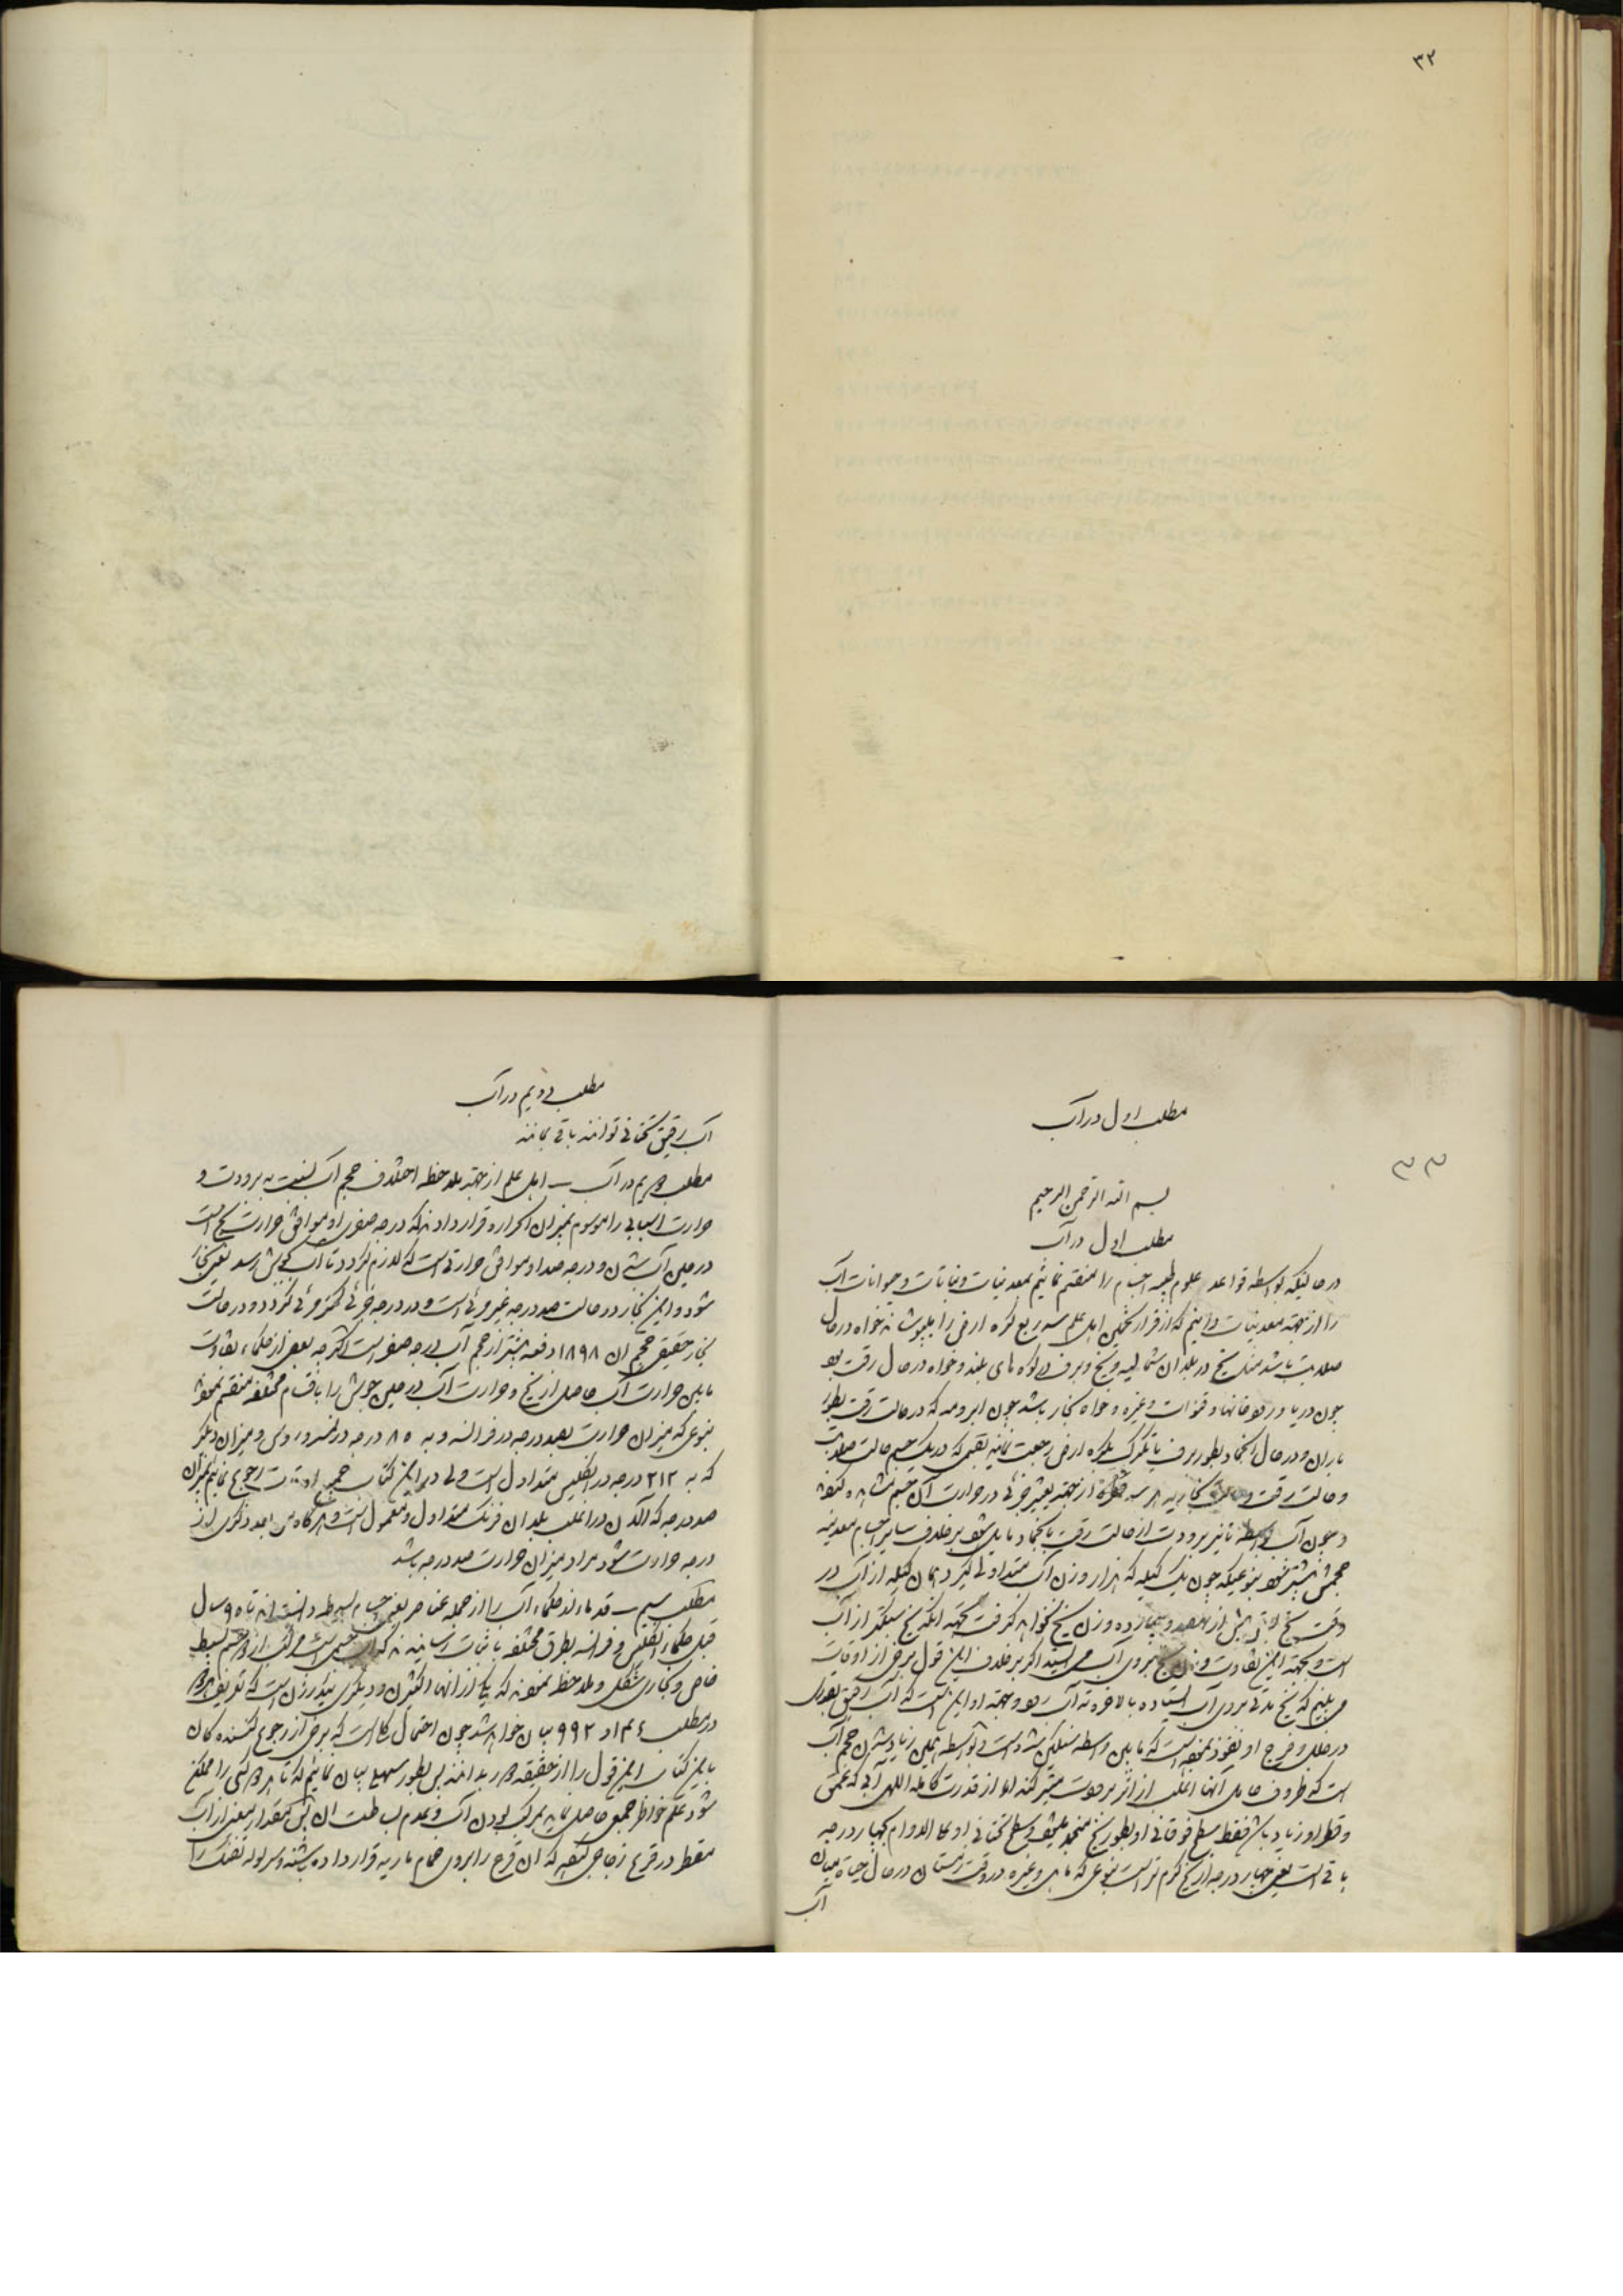 ٣٢
مطلب اول در آب
٣٣
بسم الله الرحمن الرحیم
مطلب اول در آب
در حالتیکه بواسطه قواعد علوم طبیعیه اجسام را منقسم نمائیم بمعدنیات و نباتات و حیوانات آب
را از جهته معدنیات دانیم که از قرار تخمین اهل علم سه ربع کره ارض را میپوشاند خواه در حال
صلابت باشد مثل یخ در بلدان شمالیه و یخ و برف در کوه های بلند و خواه در حال رقت بود
چون دریا و رودخانها و قنوات و غیره و خواه بخار باشد چون ابر و مه که در حالت رقت بطور
باران و در حال انجماد بطور برف یا تگرگ بکره ارض رجعت نمایند بقسمی که در یک جسم حالت صلابت
و حالت رقت و حالت بخاریه هر سه از جهته تغییر جزئی در حرارت آن جسم مشاهده
و چون آب بواسطه تاثیر برودت از حالت رقت بانجماد مایل شود بر خلاف سایر اجسام معدنیه
حجمش بیشتر شود بنوعیکه چون یک کیله که هزار وزن آب متداولی گیرد همان کیله از آب در
وقت یخ بیش از نهصد و وزن یخ نخواهد گرفت بجهته آنکه یخ سبکتر از آب
است و بجهته این تفاوت وزن یخ بروی آب می ایستد اگر بر خلاف این قول برخی از اوقات
می بینیم که یخ مدتی بروی آب ایستاده بالاخره ته آب رود و جهته او این است که آب رقیق بقدری
در خلل و فرج او نفوذ نموده است که باین واسطه سنگین شده است و بواسطه همین زیاد شدن حجم آب
است که ظروف حامل آنها اغلب از اثر برودت می‌ترکند اما از قدرت کامله الهی آبی که عمق
و قطر او زیاد باشد فقط سطح فوقانی او بطور یخ منجمد میشود و سطح تحتانی او علی الدوام بچهار درجه
باقی است یعنی چهار درجه از یخ گرم تر است بنوعی که ماهی و غیره در وقت زمستان در حال حیات میان
آب
مطلب دویم در آب
آب رقیق تحتانی توانند باقی بمانند
مطلب دویم در آب – اهل علم از جهته ملاحظه اختلاف حجم آب نسبت به برودت و
حرارت اسبابی را موسوم بمیزان الحراره قرار دادند که درجه صفر او موافق حرارت یخ است
در حین آب شدن و درجه صد او موافق حرارتی است که لازم گردد تا آب بجوش رسد یعنی بخار
شود و این بخار در حالت صد درجه غیر مرئی است و در درجه جزئی کمتر مرئی گردد و در حالت
بخار حقیقی حجم ان ١٨٩٨ دفعه بیشتر از حجم آب درجه صفر است اگر چه بعضی از حکماء تفاوت
مابین حرارت آب حاصل از یخ و حرارت آب در حین جوش را باقسام مختلفه منقسم نموده
بنوعی که میزان حرارت بصد درجه در فرانسه و به ٨٥ درجه در نمسه و روس و میزان دیگر
که به ٢١٢ درجه در انگلیس متداول است ولی در این کتاب جمیع اوقات رجوع نمائیم بمیزان
صد درجه که الان در اغلب بلدان فرنگ متداول و معمول است و هر گاه من بعد ذکری از
درجه حرارت شود مراد میزان حرارت صد درجه باشد
مطلب سیم – قدماء از حکماء آب را از جمله عناصر یعنی جسام بسیط دانسته اند تا ٩٥ سال
قبل حکماء انگلیس و فرانسه بطرق مختلفه باثبات رسانیدند که مرکب از دو جسم بسیط
خاص و بخاری شکل و ملاحظه نمودند که یکی از آنها اکسژن و دیگری ئیدرژن است که تعریف هر دو
در مطلب ٤ و ٩٩٢ بیان خواهد شد چون احتمال کلی است که برخی از رجوع کننده گان
باین کتاب این قول را از حقیقت دور بدانند پس بطور سهل بیان نمائیم که تا هر کسی را ممکن
شود علم خواطر جمعی حاصل نماید بمرکب بودن آب و عدم بساطت ان پس بقدر معین از آب
مقطر در قرع زجاجی که ان قرع را بروی حمام ماریه قرار داده باشند و سر لوله تفنگ را